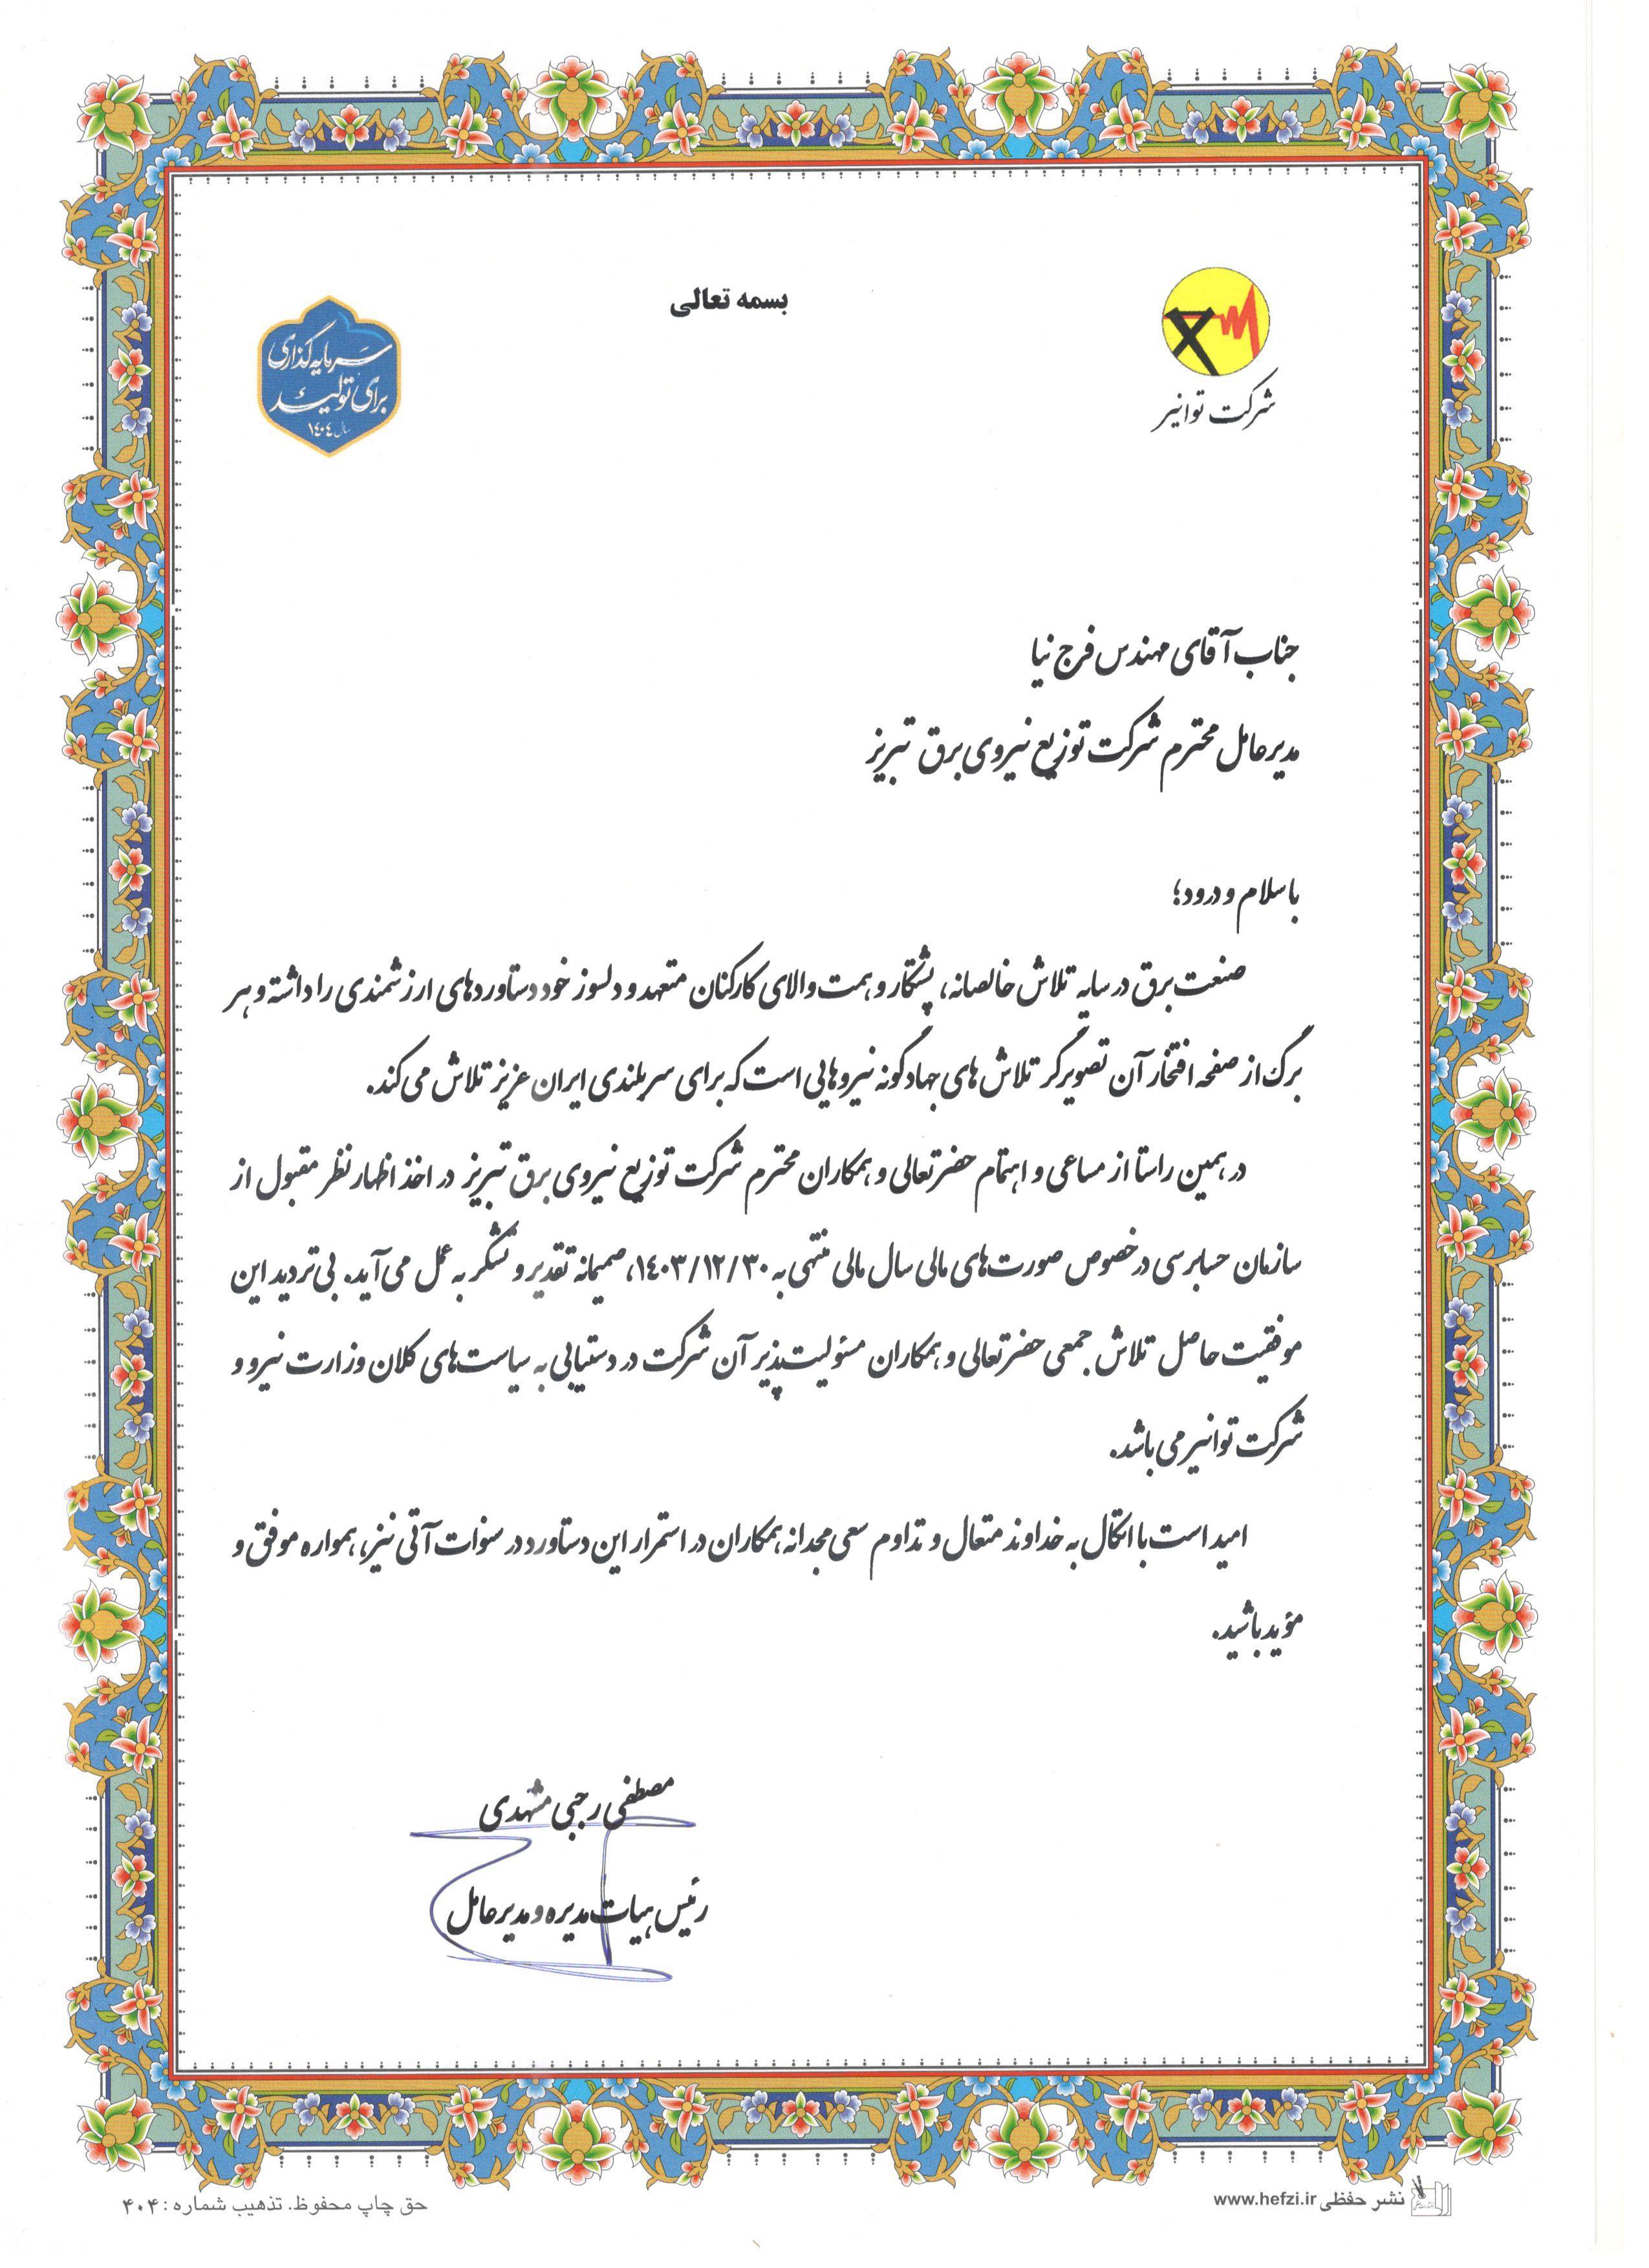 بسمه تعالی
شرکت توانیر
سرمایه‌گذاری
برای تولید
سال ۱۴۰۴
جناب آقای مهندس فرج نیا
مدیرعامل محترم شرکت توزیع نیروی برق تبریز
با سلام و درود؛
صنعت برق در سایه تلاش خالصانه، پشتکار و همت والای کارکنان متعهد و دلسوز خود دستاوردهای ارزشمندی را داشته و هر
برگ از صفحه افتخار آن تصویرگر تلاش های جهادگونه نیروهایی است که برای سربلندی ایران عزیز تلاش می کند.
در همین راستا از مساعی و اهتمام حضرتعالی و همکاران محترم شرکت توزیع نیروی برق تبریز در اخذ اظهارنظر مقبول از
سازمان حسابرسی در خصوص صورت‌های مالی سال مالی منتهی به ۱۴۰۳/۱۲/۳۰، صمیمانه تقدیر و تشکر به عمل می آید. بی تردید این
موفقیت حاصل تلاش جمعی حضرتعالی و همکاران مسئولیت‌پذیر آن شرکت در دستیابی به سیاست‌های کلان وزارت نیرو و
شرکت توانیر می باشد.
امید است با اتکال به خداوند متعال و تداوم سعی مجدانه همکاران در استمرار این دستاورد در سنوات آتی نیز، همواره موفق و
مؤید باشید.
مصطفی رجبی مشهدی
رئیس هیات مدیره و مدیرعامل
نشر حفظی www.hefzi.ir
حق چاپ محفوظ. تذهیب شماره : ۴۰۴